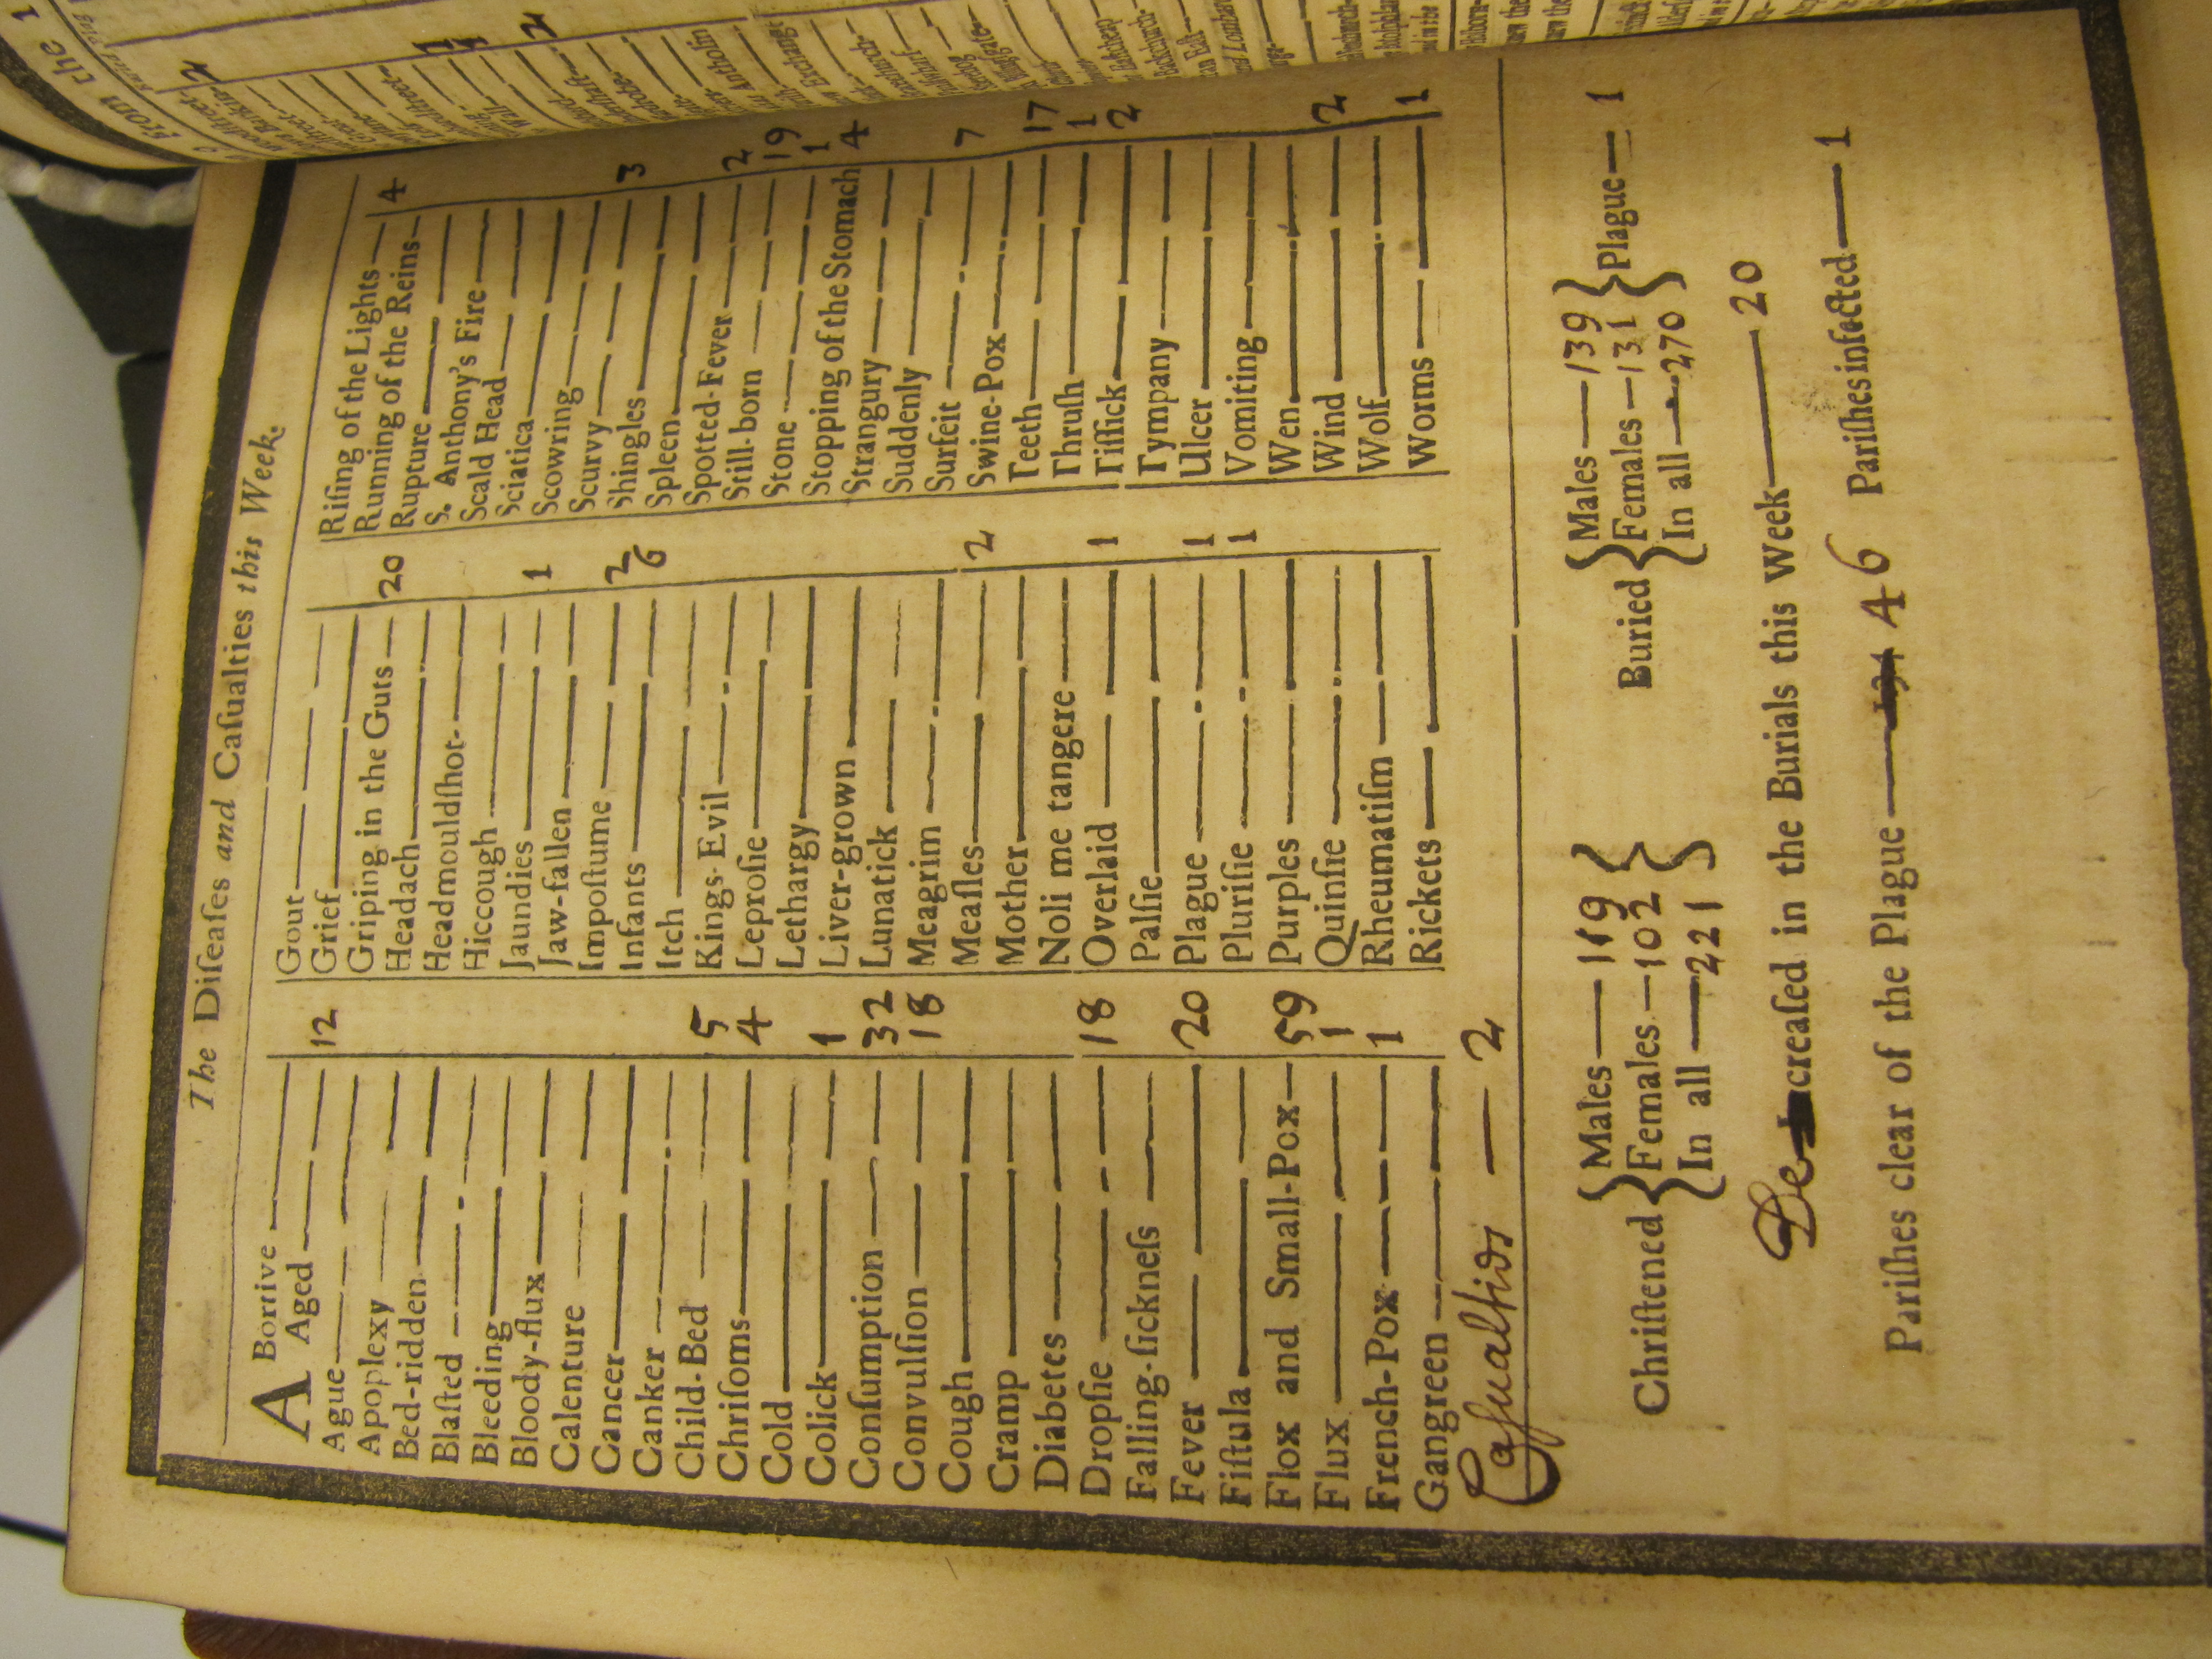 The Diſeaſes and Caſualties this Week.
A Bortive
Aged 12
Ague
Apoplexy
Bed-ridden
Blaſted
Bleeding
Bloody-flux
Calenture
Cancer
Canker
Child-Bed 5
Chriſoms 4
Cold
Colick 1
Conſumption 32
Convulſion 18
Cough
Cramp
Diabetes
Dropſie 18
Falling-ſickneſs
Fever 20
Fiſtula
Flox and Small-Pox 59
Flux 1
French-Pox 1
Gangreen
Caſualtids — 2
Gout
Grief
Griping in the Guts 20
Headach
Headmouldſhot
Hiccough
Jaundies 1
Jaw-fallen
Impoſtume 2
Infants 6
Itch
Kings-Evil
Leproſie
Lethargy
Liver-grown
Lunatick
Meagrim
Meaſles 2
Mother
Noli me tangere
Overlaid 1
Palſie
Plague 1
Pluriſie 1
Purples
Quinſie
Rheumatiſm
Rickets
Riſing of the Lights 4
Running of the Reins
Rupture
S. Anthony's Fire
Scald Head
Sciatica
Scowring
Scurvy 3
Shingles
Spleen
Spotted-Fever 2
Still-born 19
Stone 1
Stopping of the Stomach 4
Strangury
Suddenly
Surfeit 7
Swine-Pox
Teeth 17
Thruſh 1
Tiſſick 2
Tympany
Ulcer
Vomiting
Wen
Wind 2
Wolf
Worms 1
Chriſtened { Males — 119
Females — 102
In all — 221 }
Buried { Males — 139
Females — 131
In all — 270 } Plague — 1
Decreaſed in the Burials this Week — 20
Pariſhes clear of the Plague — 46 Pariſhes infected — 1